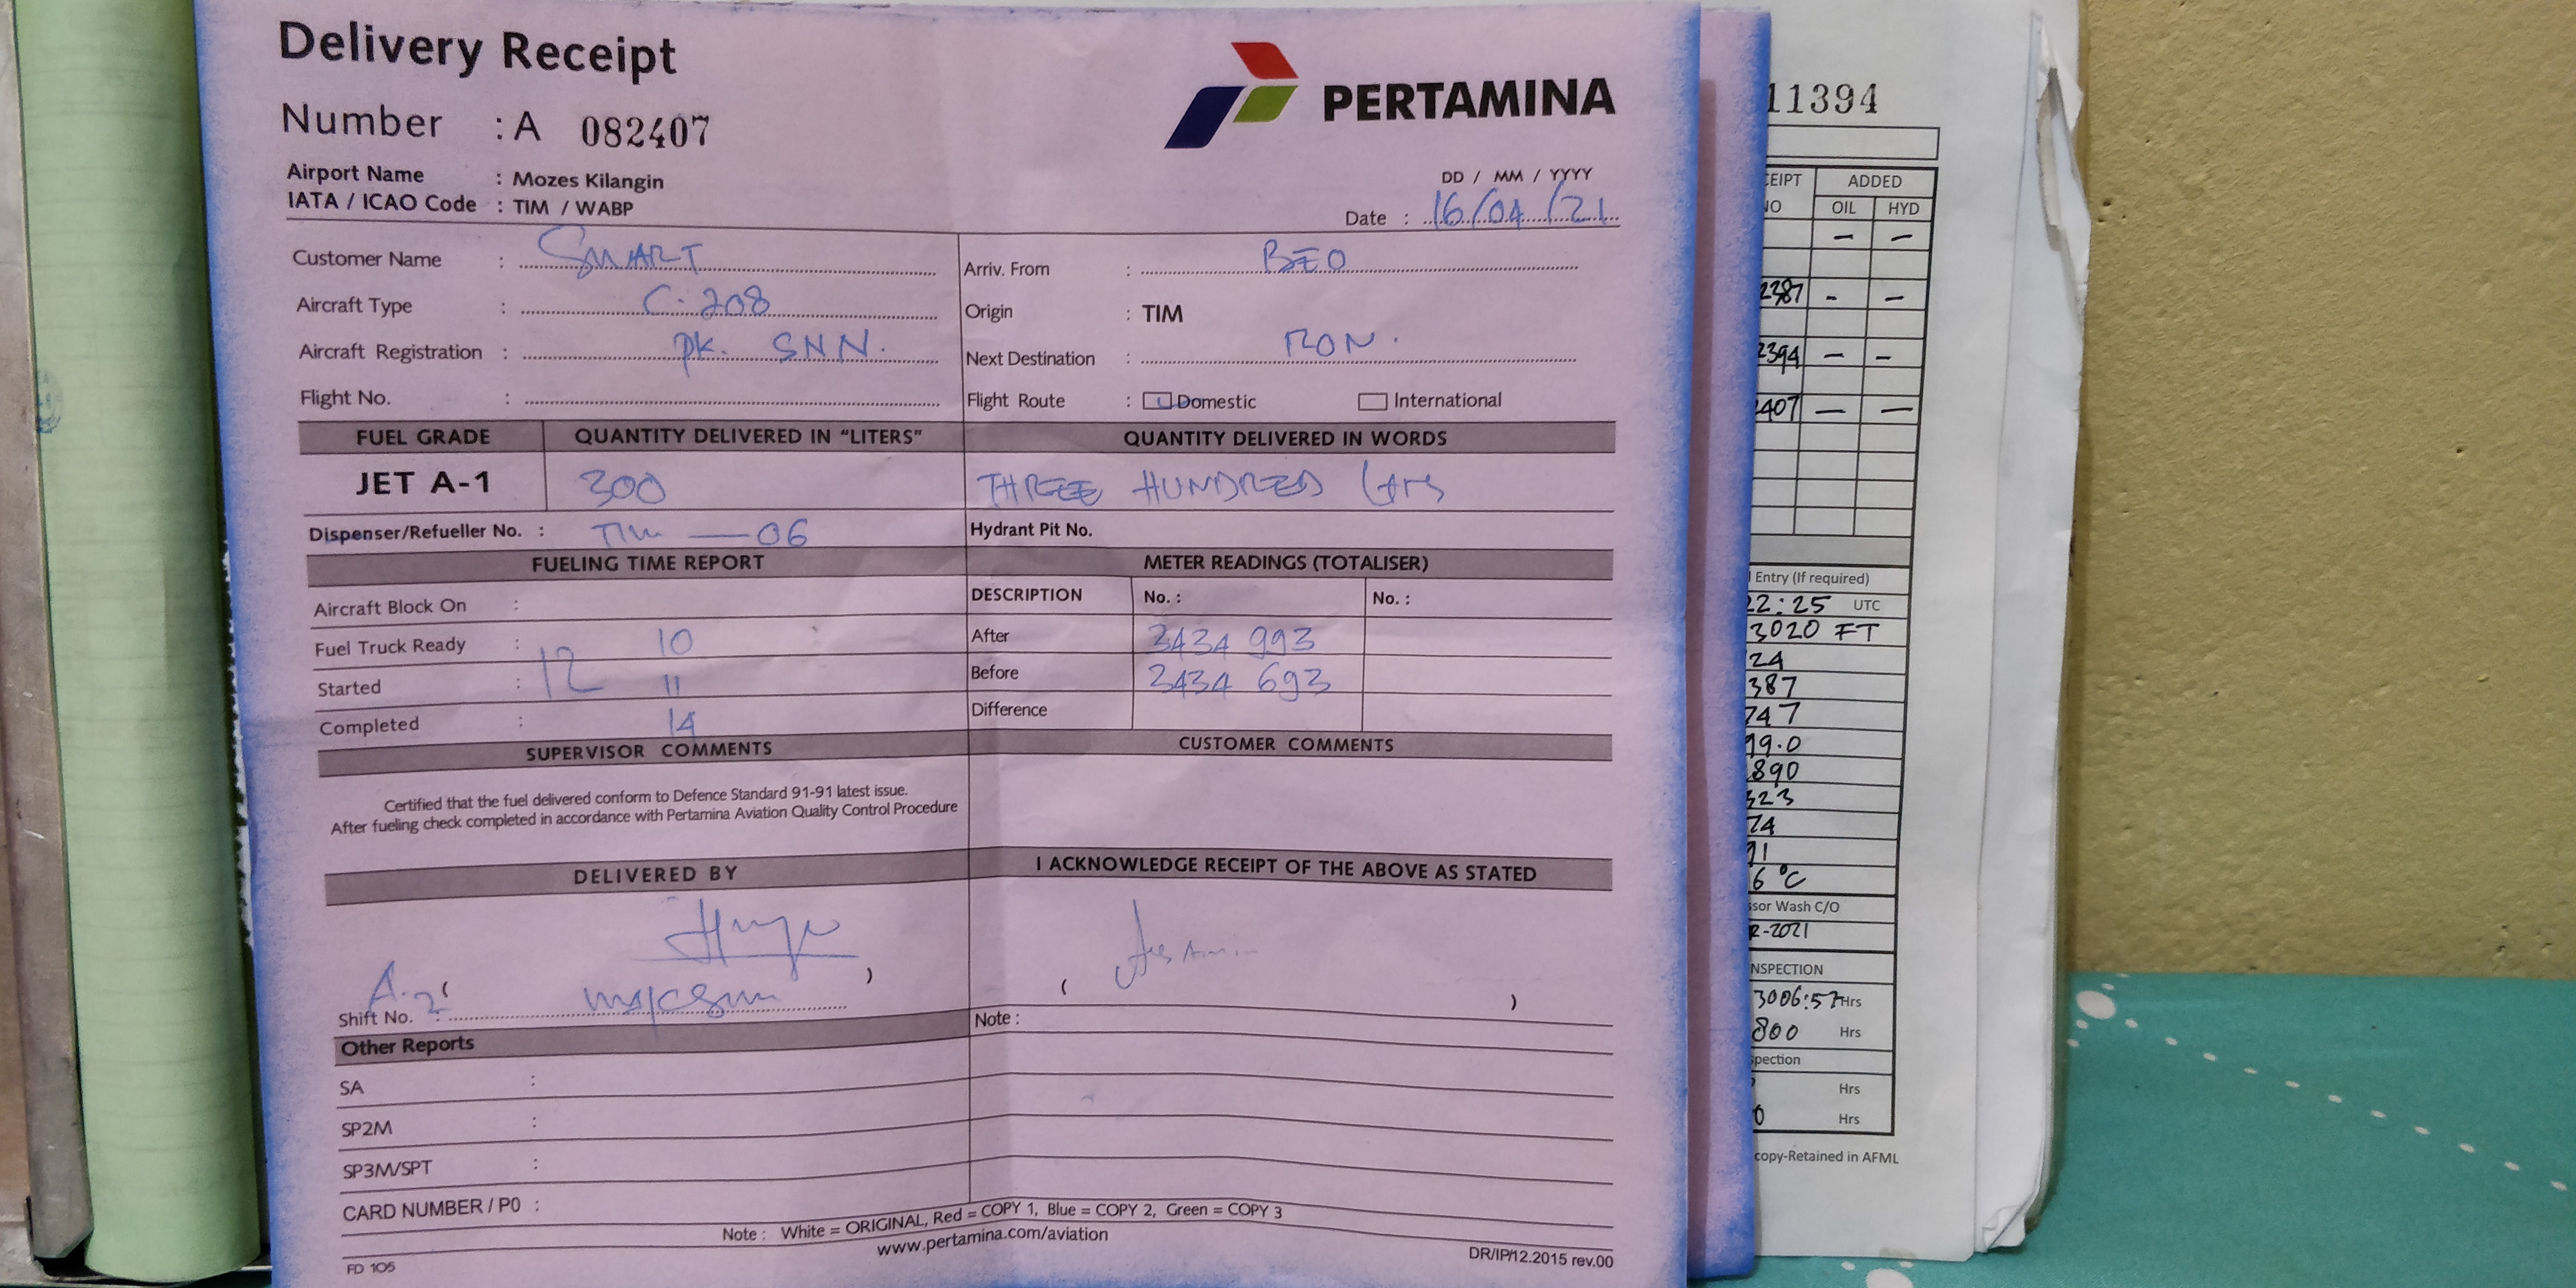 Delivery Receipt
PERTAMINA
Number : A 082407
Airport Name : Mozes Kilangin
IATA / ICAO Code : TIM / WABP
DD / MM / YYYY
Date : 16/04/21
Customer Name : SMART
Aircraft Type : C-208
Aircraft Registration : PK. SNN.
Flight No. :
Arriv. From : BEO
Origin : TIM
Next Destination : RON.
Flight Route : Domestic International
FUEL GRADE QUANTITY DELIVERED IN “LITERS” QUANTITY DELIVERED IN WORDS
JET A-1 300 THREE HUNDRED Ltrs
Dispenser/Refueller No. : TIM — 06 Hydrant Pit No.
FUELING TIME REPORT
Aircraft Block On :
Fuel Truck Ready : 10
12
Started : 11
Completed : 14
METER READINGS (TOTALISER)
DESCRIPTION No. : No. :
After 3434 993
Before 3434 693
Difference
SUPERVISOR COMMENTS CUSTOMER COMMENTS
Certified that the fuel delivered conform to Defence Standard 91-91 latest issue.
After fueling check completed in accordance with Pertamina Aviation Quality Control Procedure
DELIVERED BY I ACKNOWLEDGE RECEIPT OF THE ABOVE AS STATED
( ) ( )
Shift No. : A.2
Note :
Other Reports
SA :
SP2M :
SP3M/SPT :
CARD NUMBER / P0 :
Note : White = ORIGINAL, Red = COPY 1, Blue = COPY 2, Green = COPY 3
www.pertamina.com/aviation
FD 105
DR/IP/12.2015 rev.00
11394
CEIPT ADDED
NO OIL HYD
— —
2387 - —
2394 — —
407 — —
Entry (If required)
22:25 UTC
3020 FT
24
387
747
99.0
890
323
74
91
6 °C
ssor Wash C/O
R-2021
NSPECTION
3006:57 Hrs
800 Hrs
spection
Hrs
0 Hrs
copy-Retained in AFML